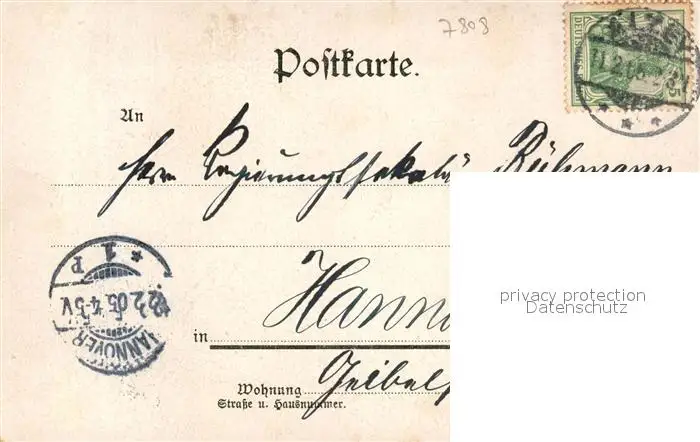 7808
Postkarte.
An
Herrn Regierungssekretär Rühmann
privacy protection
Datenschutz
in Hanno
Wohnung Geibels
Straße u. Hausnummer.
DEUTSCHES REICH
5
HANNOVER
12.2.05.4-5V.
* 1 P